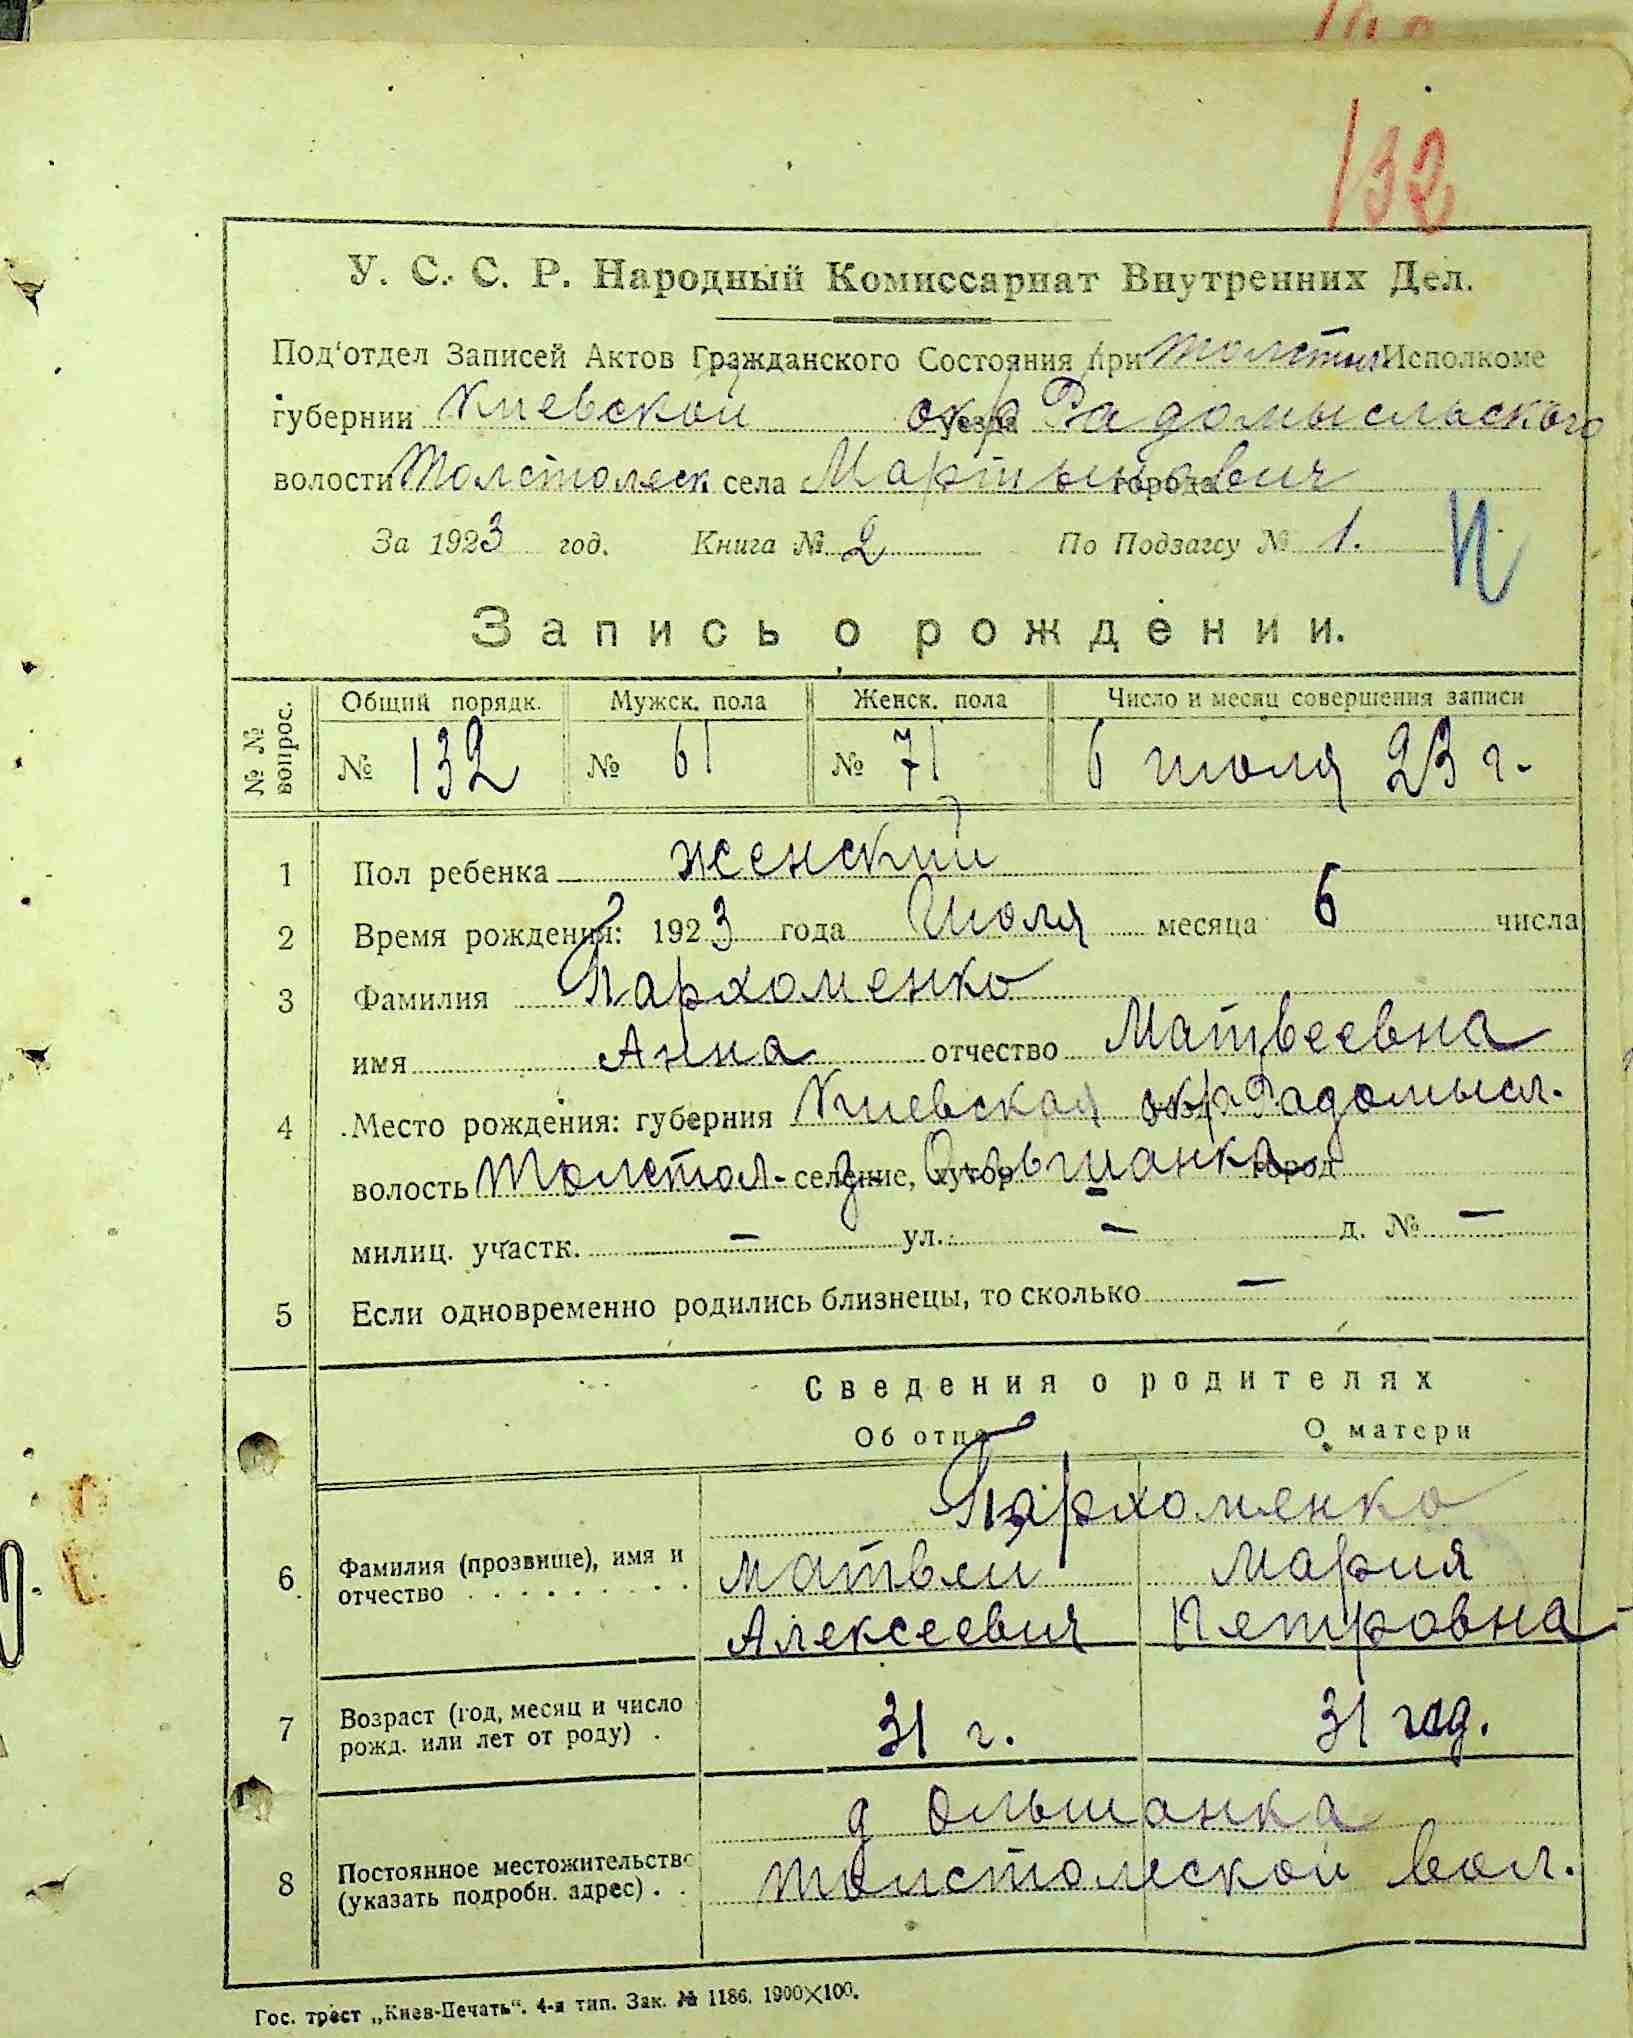 132
У. С. С. Р. Народный Комиссариат Внутренних Дел.
Под'отдел Записей Актов Гражданского Состояния при Толстол Исполкоме
губернии Киевской уезда окр Радомысльского
волости Толстолеск села Мартынович города
За 1923 год. Книга № 2 По Подзагсу № 1.
Запись о рождении.
№ № вопрос. Общий порядк. Мужск. пола Женск. пола Число и месяц совершения записи
№ 132 № 61 № 71 6 июля 23 г.
1 Пол ребенка женский
2 Время рождения: 1923 года Июля месяца 6 числа
3 Фамилия Пархоменко
имя Анна отчество Матвеевна
4 Место рождения: губерния Киевская окр. Радомысл.
волость Толстол- селение, хутор д. Ольшанка город
милиц. участк. — ул. — д. № —
5 Если одновременно родились близнецы, то сколько —
Сведения о родителях
Об отце О матери
Пархоменко
6 Фамилия (прозвище), имя и Матвей Мария
отчество Алексеевич Петровна
7 Возраст (год, месяц и число 31 г. 31 год.
рожд. или лет от роду)
д Ольшанка
8 Постоянное местожительство Толстолеской вол.
(указать подробн. адрес)
Гос. трест „Киев-Печать“. 4-я тип. Зак. № 1186. 1900×100.